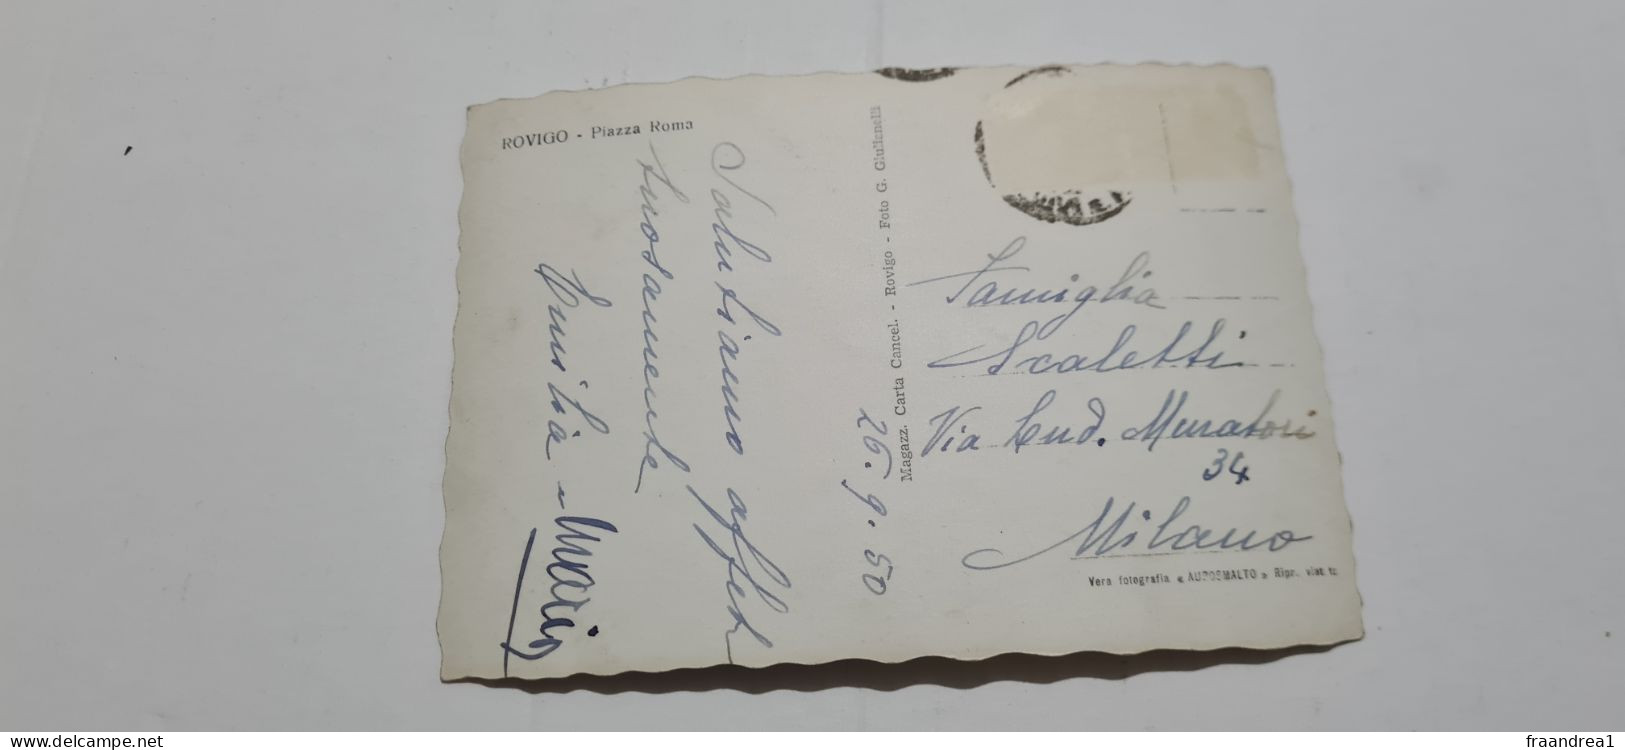 ROVIGO - Piazza Roma
Salutiamo affet
tuosamente
Emilia Maria
26.9.50
Magazz. Carta Cancel. - Rovigo - Foto G. Giulianelli
Famiglia
Scaletti
Via Lud. Muratori
34
Milano
Vera fotografia « AUROSMALTO » Ripr. viet. tz
delcampe.net
fraandrea1